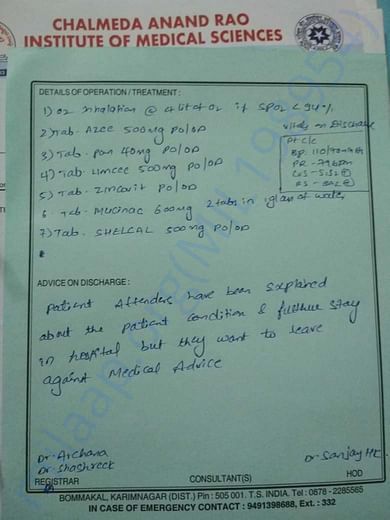 CHALMEDA ANAND RAO
INSTITUTE OF MEDICAL SCIENCES
DETAILS OF OPERATION / TREATMENT :
1) O2 Inhalation @ 4 lit of O2 if SPO2 < 94%
2) Tab. AZEE 500mg PO/OD
vitals on Discharge
3) Tab. Pan 40mg PO/OD
Pt c/c
4) Tab. LIMCEE 500mg PO/OD
BP. 110/70
PR - 79bpm
5) Tab. ZINCOVIT PO/OD
6. Tab. MUCINAC 600mg 2 tabs in 1 glass of water
7) Tab. SHELCAL 500mg PO/OD
ADVICE ON DISCHARGE :
Patient Attenders have been explained
about the patient condition & further stay
in hospital but they want to leave
against Medical Advice
Dr. Archana
Dr. Shashreek
Dr Sanjay HK.
REGISTRAR CONSULTANT(S) HOD
BOMMAKAL, KARIMNAGAR (DIST.) Pin : 505 001. T.S. INDIA. Tel : 0878 - 2285565
IN CASE OF EMERGENCY CONTACT : 9491398688, Ext. : 332